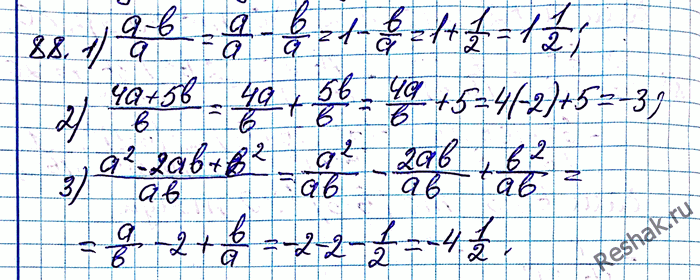 88. 1) (a-b)/a = a/a - b/a = 1 - b/a = 1 + 1/2 = 1 1/2;
2) (4a+5b)/b = 4a/b + 5b/b = 4a/b + 5 = 4(-2) + 5 = -3;
3) (a² - 2ab + b²)/ab = a²/ab - 2ab/ab + b²/ab =
= a/b - 2 + b/a = -2 - 2 - 1/2 = -4 1/2.
Reshak.ru